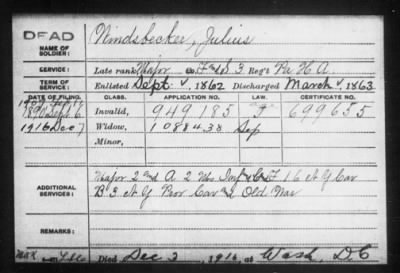 DEAD
NAME OF SOLDIER: Windsbecker, Julius
SERVICE: Late rank Major Co. F & S 3 Reg't Pa H A
TERM OF SERVICE: Enlisted Sept, 1862 Discharged March, 1863
DATE OF FILING. CLASS. APPLICATION NO. LAW. CERTIFICATE NO.
1890 Sept 6 Invalid, 949185 699655
1916 Dec 7 Widow, 1088438 Sep
Minor,
ADDITIONAL SERVICES: Major 2nd A 2 16 N Y Cav
B 3 N Y Prov Cav Old War
REMARKS:
Died Dec 2, 1916, at Wash. D C